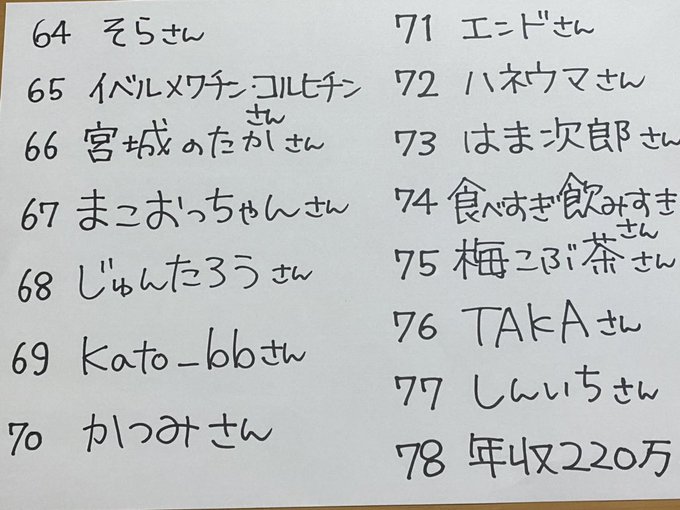 64 そらさん
65 イベルメワチン・コルヒチン
さん
66 宮城のたかさん
67 まこおっちゃんさん
68 じゅんたろうさん
69 kato_bbさん
70 かつみさん
71 エンドさん
72 ハネウマさん
73 はま次郎さん
74 食べすぎ飲みすぎ
さん
75 梅こぶ茶さん
76 TAKAさん
77 しんいちさん
78 年収220万